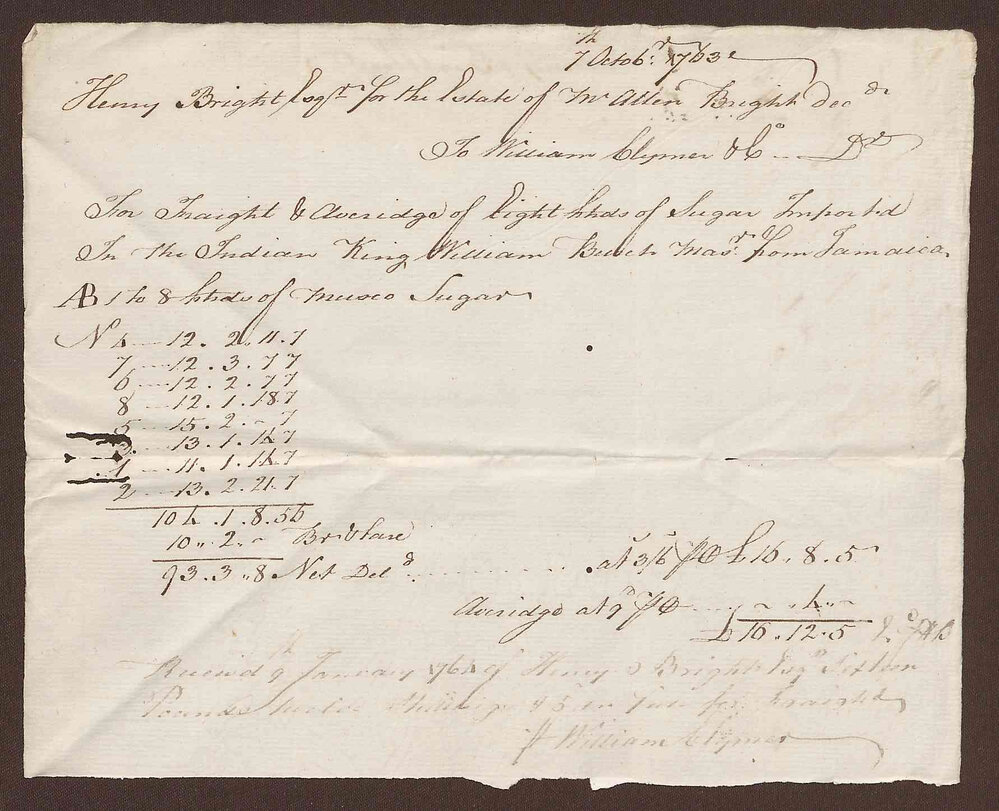 7th Octobr. 1763
Henry Bright Esqr. for the Estate of Mr Allen Bright Decd
To William Clymer & Co Dr
For Fraight & Averidge of Eight hhds of Sugar Imported
In the Indian King William Beach Masr. from Jamaica
AB 1 to 8 hhds of Musco Sugar
No 4 12. 2. 11. 7
7 12. 3. 7 7
6 12. 2. 7 7
8 12. 1. 18. 7
5 15. 2. - 7
3 13. 1. 14. 7
1 11. 1. 14. 7
2 13. 2. 21. 7
104. 1. 8. 56
10 .. 2 .. - Br & Tare
93. 3 .. 8 Net Deld at 3/6 £ 16. 8. 5
Averidge at 9d - .. 4 .. -
£ 16. 12. 5
Receivd 9th January 1764 of Henry Bright Esqr Sixteen
Pounds twelve Shillings & 5d in full for Fraight
William Clymer